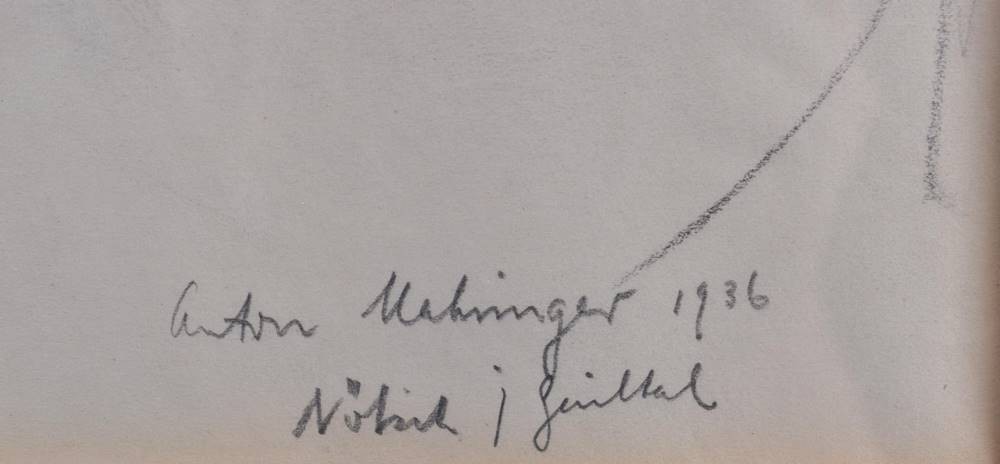 Anton Mahringer 1936
Nötsch i Gailtal